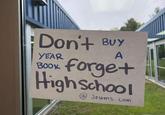 Don't BUY
YEAR A
BOOK forget
Highschool
@ Jostens. com